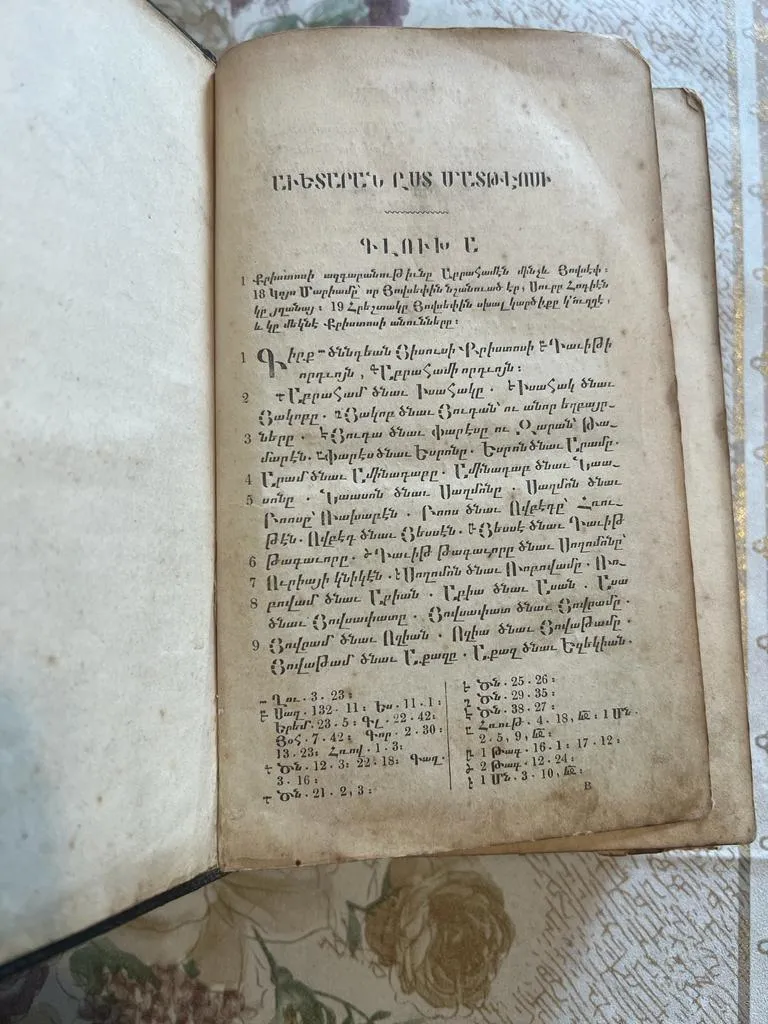 ԱՒԵՏԱՐԱՆ ԸՍՏ ՄԱՏԹԷՈՍԻ
ԳԼՈՒԽ Ա
1 Քրիստոսի ազգաբանութիւնը Աբրահամէն մինչեւ Յովսէփ։
18 Կոյս Մարիամը՝ որ Յովսեփին նշանուած էր, Սուրբ Հոգիէն
կը յղանայ։ 19 Հրեշտակը Յովսեփին սխալ կարծիքը կ՚ուղղէ,
եւ կը մեկնէ Քրիստոսի անունները։
1 Գիրք ծննդեան Յիսուսի Քրիստոսի Դաւիթի
որդւոյն, Աբրահամի որդւոյն։
2 Աբրահամ ծնաւ Իսահակը․ Իսահակ ծնաւ
Յակոբը․ Յակոբ ծնաւ Յուդան՝ ու անոր եղբայր-
3 ները․ Յուդա ծնաւ Փարէսը ու Զարան՝ Թա-
մարէն․ Փարէս ծնաւ Եսրոնը․ Եսրոն ծնաւ Արամը․
4 Արամ ծնաւ Ամինադաբը․ Ամինադաբ ծնաւ Նաա-
5 սոնը․ Նաասոն ծնաւ Սաղմոնը․ Սաղմոն ծնաւ
Բոոսը՝ Ռախաբէն․ Բոոս ծնաւ Ովբեդը՝ Հռու-
թէն․ Ովբեդ ծնաւ Յեսսէն․ Յեսսէ ծնաւ Դաւիթ
6 թագաւորը․ Դաւիթ թագաւորը ծնաւ Սողոմոնը՝
7 Ուրիայի կնիկէն․ Սողոմոն ծնաւ Ռոբովամը․ Ռո-
8 բովամ ծնաւ Աբիան․ Աբիա ծնաւ Ասան․ Ասա
ծնաւ Յովսափատը․ Յովսափատ ծնաւ Յովրամը․
9 Յովրամ ծնաւ Ոզիան․ Ոզիա ծնաւ Յովաթամը․
Յովաթամ ծնաւ Աքազը․ Աքազ ծնաւ Եզեկիան․
Ղու․ 3․ 23։
Սաղ․ 132․ 11։ Ես․ 11․ 1։
Երեմ․ 23․ 5։ Գլ․ 22․ 42։
Յօհ․ 7․ 42։ Գոր․ 2․ 30։
13․ 23։ Հռով․ 1․ 3։
Ծն․ 12․ 3։ 22․ 18։ Գաղ․
3․ 16։
Ծն․ 21․ 2, 3։
Ծն․ 25․ 26։
Ծն․ 29․ 35։
Ծն․ 38․ 27։
Հռութ․ 4․ 18, 1 Մն․
2․ 5, 9,
1 Թագ․ 16․ 1։ 17․ 12։
2 Թագ․ 12․ 24։
1 Մն․ 3․ 10,
B